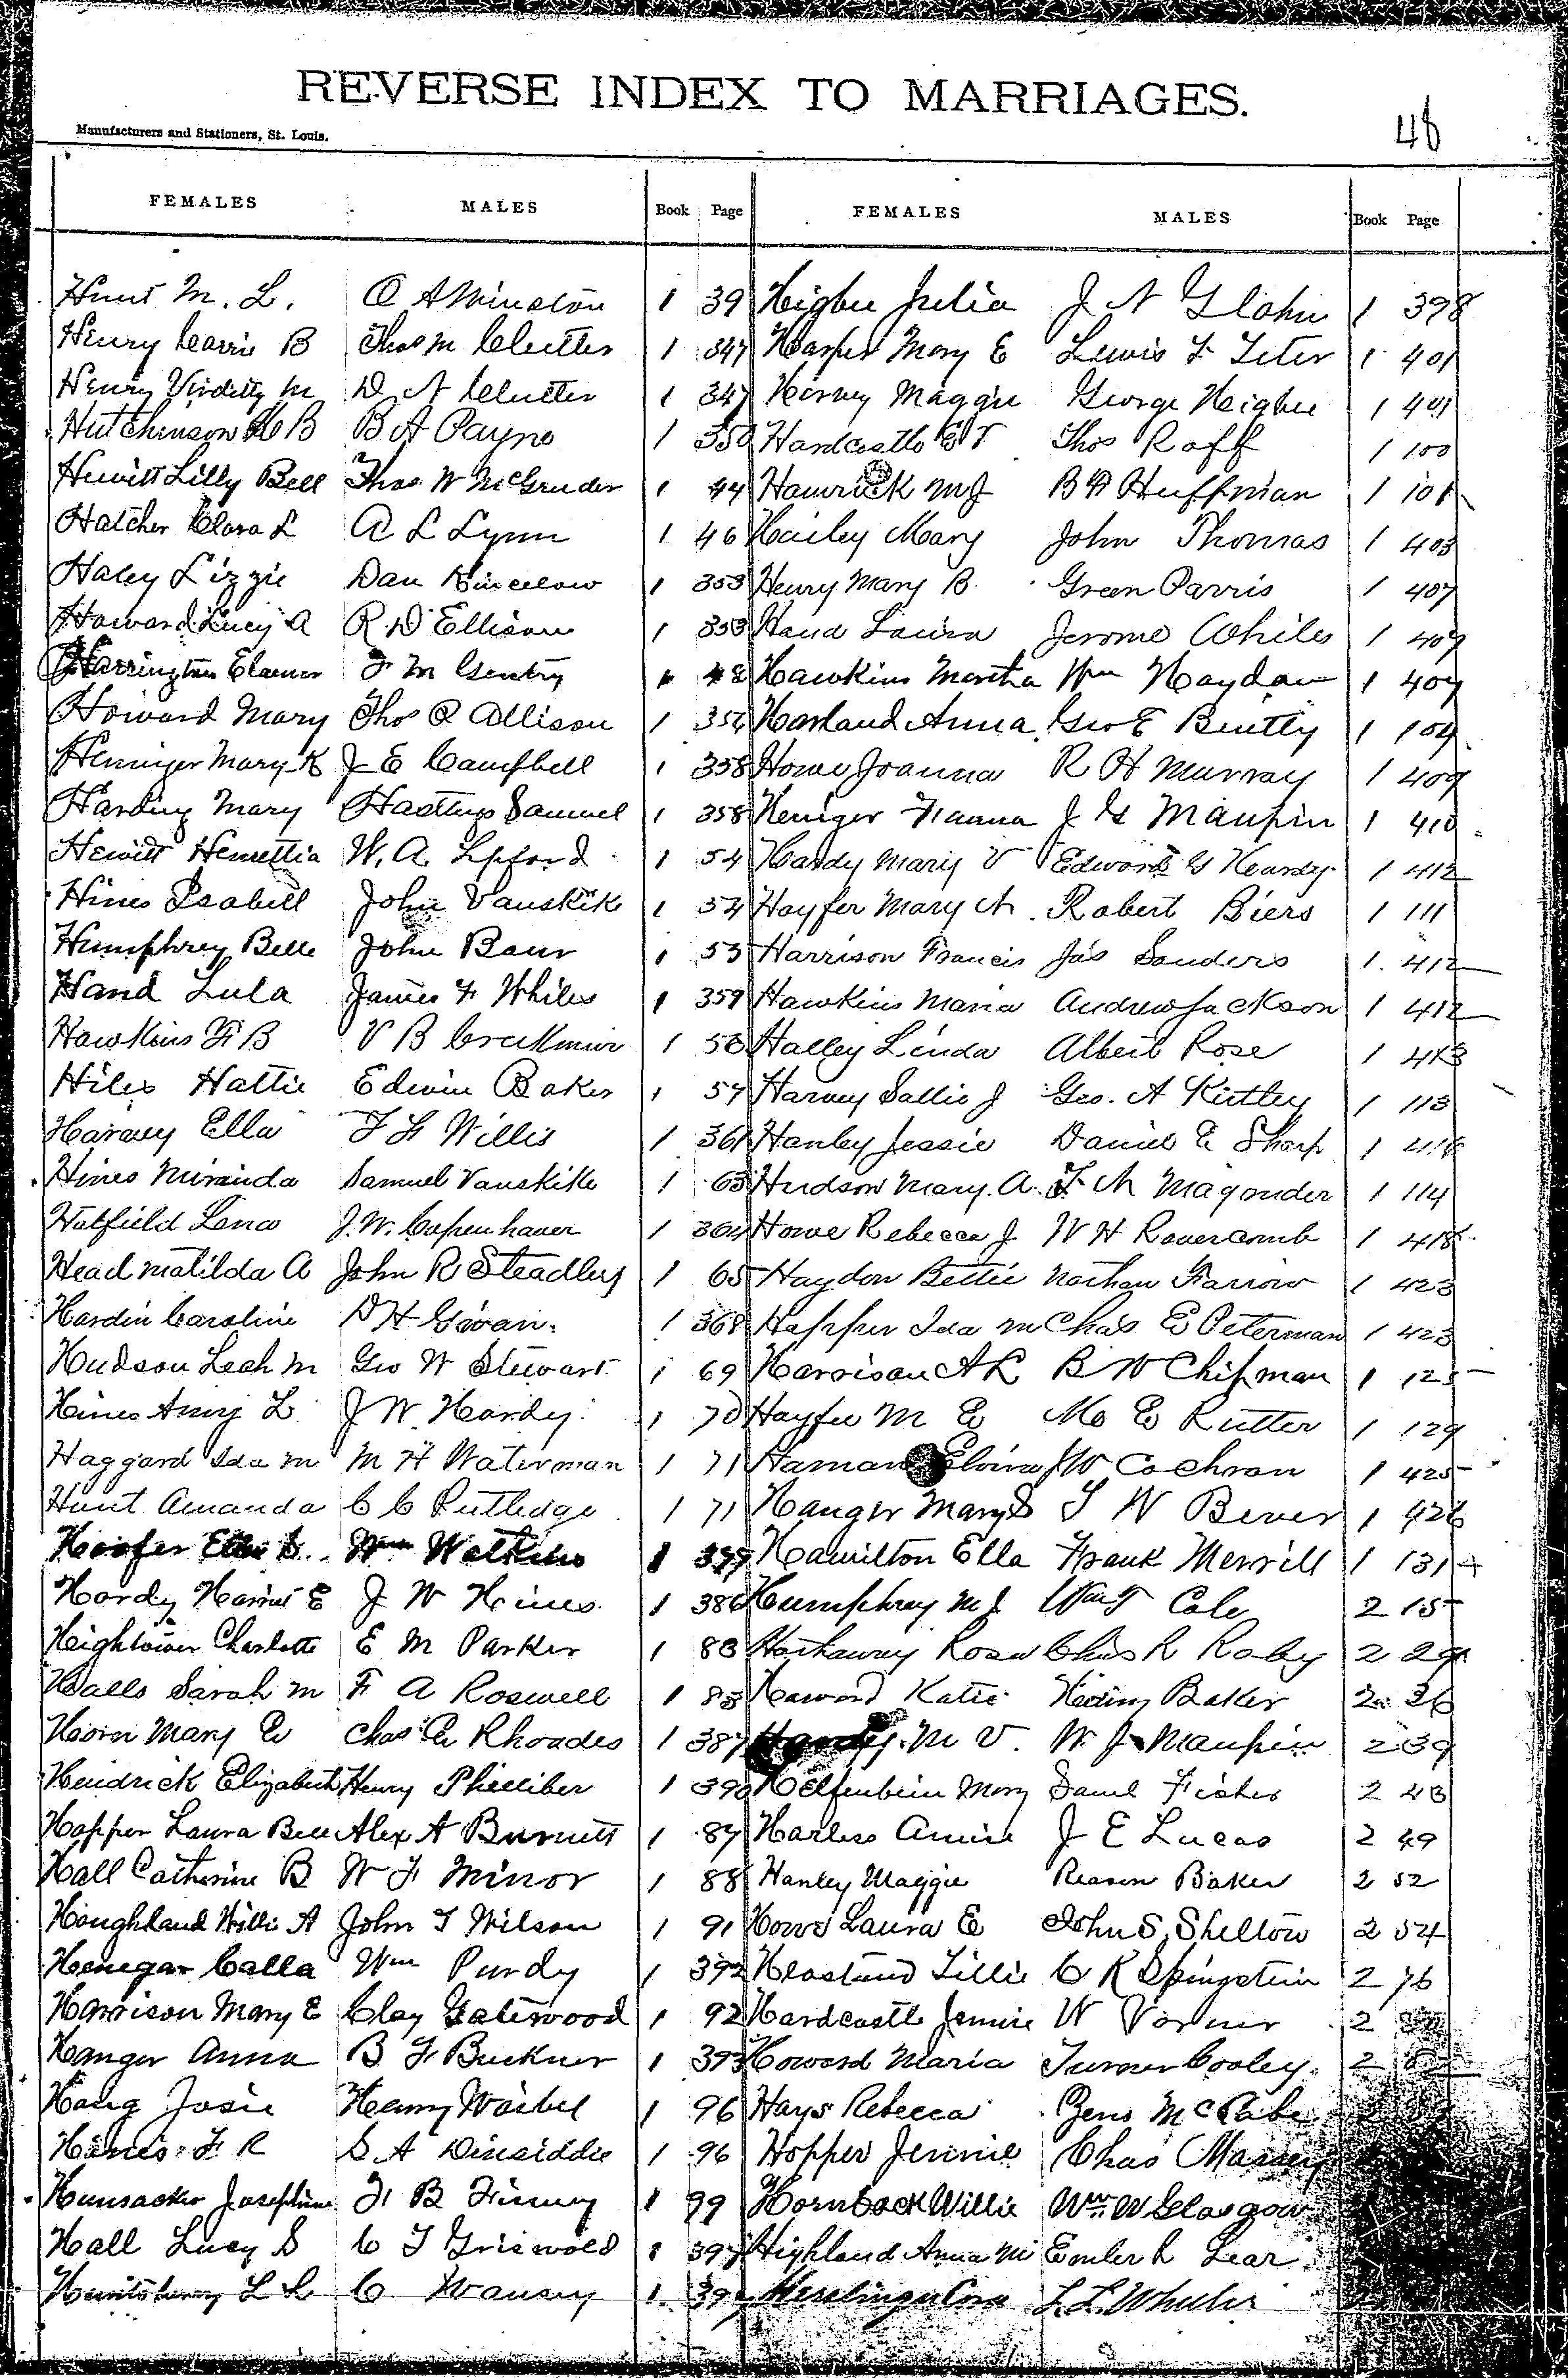 REVERSE INDEX TO MARRIAGES.
48
Manufacturers and Stationers, St. Louis.
FEMALES MALES Book Page
Hunt M. L. O A Winston 1 39
Henry Carrie B Thos M Clutter 1 347
Henry M D A Clutter 1 347
Hutchinson B B A Payne 1 350
Hewitt Lilly Bell Thos W McGruder 1 44
Hatcher Clara L A L Lynn 1 46
Haley Lizzie Dan 1 353
Howard Lucy A R D Ellison 1 353
Harrington F M Gentry 1 48
Howard Mary Thos Q Allison 1 356
Heninger Mary K J E Campbell 1 358
Harding Mary Hastings Samuel 1 358
Hewitt W. A. 1 54
Hines Isabell John Vanskik 1 54
Humphrey Belle John Baur 1 55
Hand Lula James F Whiles 1 359
Hawkins F B V B 1 56
Hiles Hattie Edwin Baker 1 57
Harvey Ella T F Willis 1 361
Hines Miranda Samuel Vanskike 1 63
Hatfield Lena J. W. Copenhaver 1 364
Head Matilda A John R Steadley 1 65
Hardin Caroline D H Givan 1 368
Hudson Leah M Geo W Stewart 1 69
Hines Amy L J W Hardy 1 70
Haggard Ida M M H Waterman 1 71
Hunt Amanda C C Rutledge 1 71
Wm Watkins 1
Hardy Harriet E J W Hines 1 386
Hightower Charlotte E M Parker 1 83
Halls Sarah M F A Roswell 1 83
Horn Mary E Chas E Rhoades 1 387
Hendrick Elizabeth Henry Philliber 1 390
Hopper Laura Bell Alex A Burnett 1 87
Hall Catherine B W F Minor 1 88
Houghland Willie A John T Wilson 1 91
Henegar Calla Wm Purdy 1 392
Harrison Mary E Clay Gatewood 1 92
Hanger Anna B F Buckner 1 393
Haug Josie Henry Waibel 1 96
Hines F R S A Dinsiddie 1 96
Hunsacker Josephine F B Finney 1 99
Hall Lucy S C T Griswold 1 397
L L C 1
FEMALES MALES Book Page
Higbee Julia J N Glahn 1 398
Harper Mary E Lewis F Teter 1 401
Maggie George Higbee 1 401
Hardcastle E T Thos Raff 1 100
Hamrick M J B D Huffman 1 101
Hailey Mary John Thomas 1 403
Henry Mary B. Green Parris 1 407
Hand Laura Jerome Whiles 1 407
Hawkins Martha Wm Haydon 1 407
Harland Anna Geo E Bently 1 104
Howe Joanna R H Murray 1 409
Heniger J G Maupin 1 410
Hardy Mary V Edward G 1 412
Hayfer Mary A. Robert Biers 1 111
Harrison Francis Jas Sanders 1 412
Hawkins Maria Andrew Jackson 1 412
Halley Linda Albert Rose 1 413
Harvey Sallie J Geo. A Kirtley 1 113
Hanley Jessie Daniel E Sharp 1
Hudson Mary A. Magouder 1 114
Howe Rebecca J W H Revercomb 1 418
Haydon Bettie Nathan Farrow 1 423
Hopper Ida M Chas E Peterman 1 423
Harrison A L B W Chipman 1 125
Hayfee M E Mc E Rutter 1 129
Elvira J W Cochran 1 425
Hanger Mary S T W Bever 1 426
Hamilton Ella Frank Merrill 1 131
Humphrey M J Cole 2 15
Hathaway Rosa Chas R Roby 2 29
Howard Katie Henry Baker 2 36
M V. W. J Maupin 2 39
Helfenbein Mary Saml Fisher 2 43
Harless Annie J E Lucas 2 49
Hanley Maggie Reason Baker 2 52
Howe Laura E John S. Shelton 2 54
Lillie C K 2 76
Hardcastle Jennie W 2
Howard Maria Turner Cooley 2
Hays Rebecca McCabe
Hopper Jennie Chas Massey
Hornback Willie Wm W Glasgow
Highland Anna M Lear
L. L. Wheeler